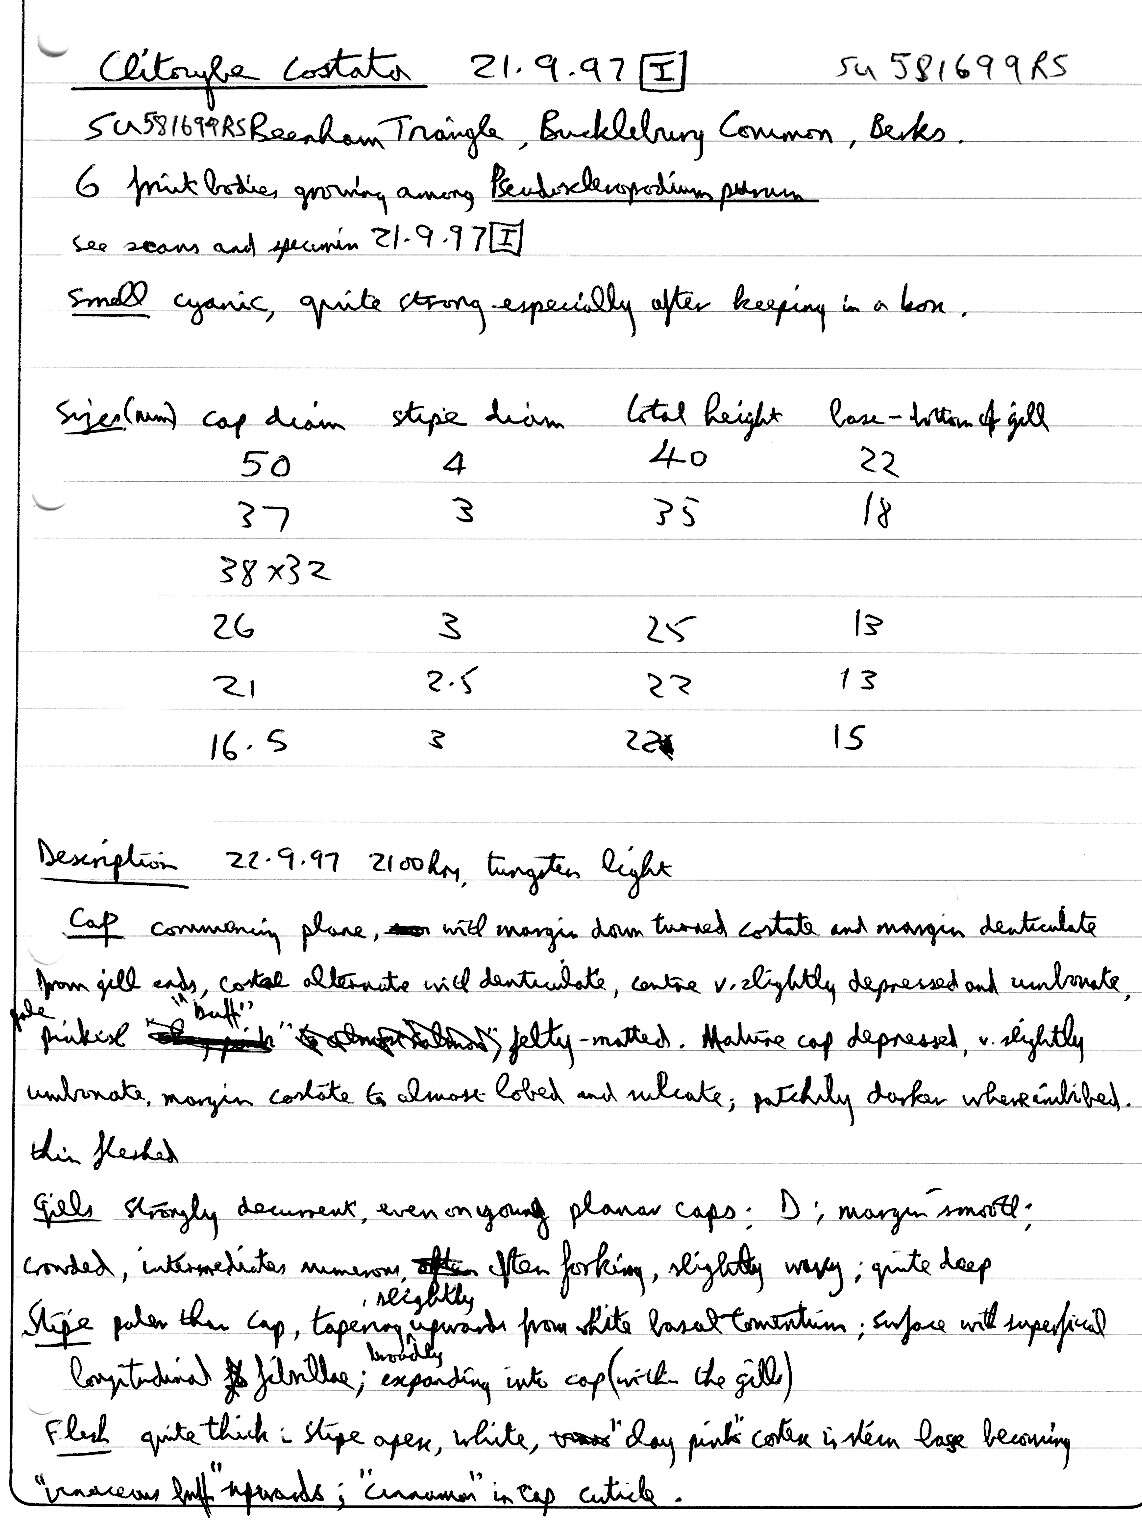 Clitocybe Costata 21.9.97 I SU 581699RS
SU581699RS Beenham Triangle, Bucklebury Common, Berks.
6 fruit bodies growing among Pseudoscleropodium purum
see scans and specimin 21.9.97 I
Smell cyanic, quite strong especially after keeping in a box.
Sizes (mm) cap diam stipe diam total height base - bottom of gill
50 4 40 22
37 3 35 18
38 x 32
26 3 25 13
21 2.5 22 13
16.5 3 22 15
Description 22.9.97 2100hrs, tungsten light
Cap commencing plane, with margin down turned costate and margin denticulate
from gill ends, costae alternate with denticulate, centre v. slightly depressed and umbonate,
pale pinkish "buff" felty-matted. Mature cap depressed, v. slightly
umbonate, margin costate to almost lobed and sulcate; patchily darker where imbibed.
thin fleshed
Gills strongly decurrent, even on young planar caps; D; margin smooth;
crowded, intermediates numerous, often forking, slightly wavy; quite deep
Stipe paler than cap, tapering slightly upwards from white basal tomentum; surface with superficial
longitudinal fibrillae; broadly expanding into cap (within the gills)
Flesh quite thick in stipe apex, white, "clay pink" cortex in stem base becoming
"vinaceous buff" upwards; "cinnamon" in cap cuticle.